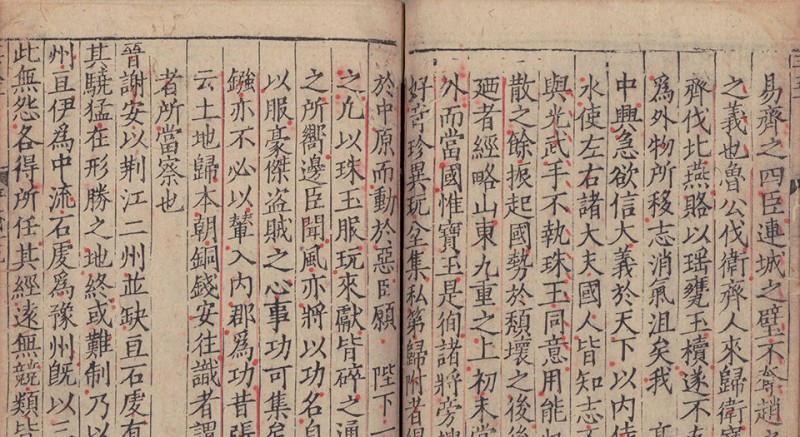 易齊之四臣連城之璧不奪趙
之義也魯公伐衛齊人來歸衛寶
齊伐北燕賂以瑶甕玉櫝遂不
爲外物所移志消氣沮矣我
中興急欲信大義於天下以内侍
水使左右諸大夫國人皆知志
與光武手不執珠玉同意用能
散之餘振起國勢於頽壞之後
廼者經略山東九重之上初未當
外而當國惟寶玉是徇諸將旁
好苛珍異玩全集私第歸附者
於中原而動於惡臣願 陛下一
之凢以珠玉服玩來獻皆碎之通
之所嚮邊臣聞風亦將以功名自
以服豪傑盗賊之心事功可集矣
鏹亦不必以輦入内郡爲功昔張
云土地歸本朝銅錢安往識者謂
者所當察也
晉謝安以荆江二州並缺亘石䖍有
其驍猛在形勝之地終或難制乃以
州亘伊爲中流石䖍爲豫州旣以三
此無怨各得所任其經遠無競類皆